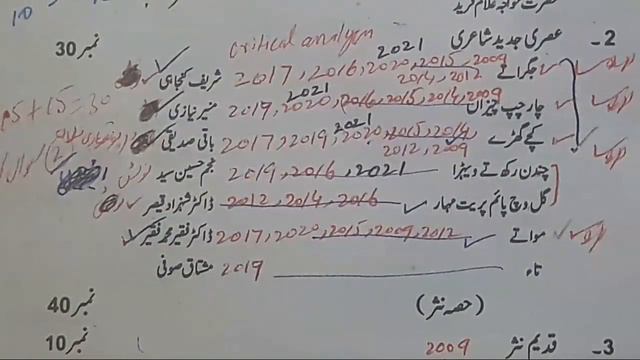 حضرت خواجہ غلام فرید
2۔ عصری جدید شاعری critical analysis نمبر 30
جگراتے 2017, 2016, 2020, 2021, 2015, 2009, 2014, 2012 شریف کنجاہی
چار چپ چیزاں 2019, 2020, 2021, 2016, 2015, 2014, 2009 منیر نیازی
15+15=30
کچے گھڑے 2017, 2019, 2020, 2021, 2015, 2014, 2012, 2009 باقی صدیقی
چندن رکھ تے ویہڑا 2019, 2016, 2021 نجم حسین سید
گل وچ پائم پریت مہار 2012, 2014, 2016 ڈاکٹر شہزاد قیصر
مواتے 2017, 2020, 2015, 2009, 2012 ڈاکٹر فقیر محمد فقیر
تاء 2019 مشتاق صوفی
(حصہ نثر) نمبر 40
3۔ قدیم نثر 2009 نمبر 10